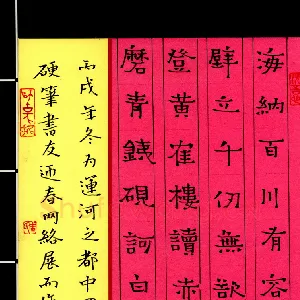 海納百川有容
壁立千仞無欲
登黄崔樓讀赤
磨青錢硯訶白
丙戌年冬为運河之都中
硬筆書友迎春网絡展而